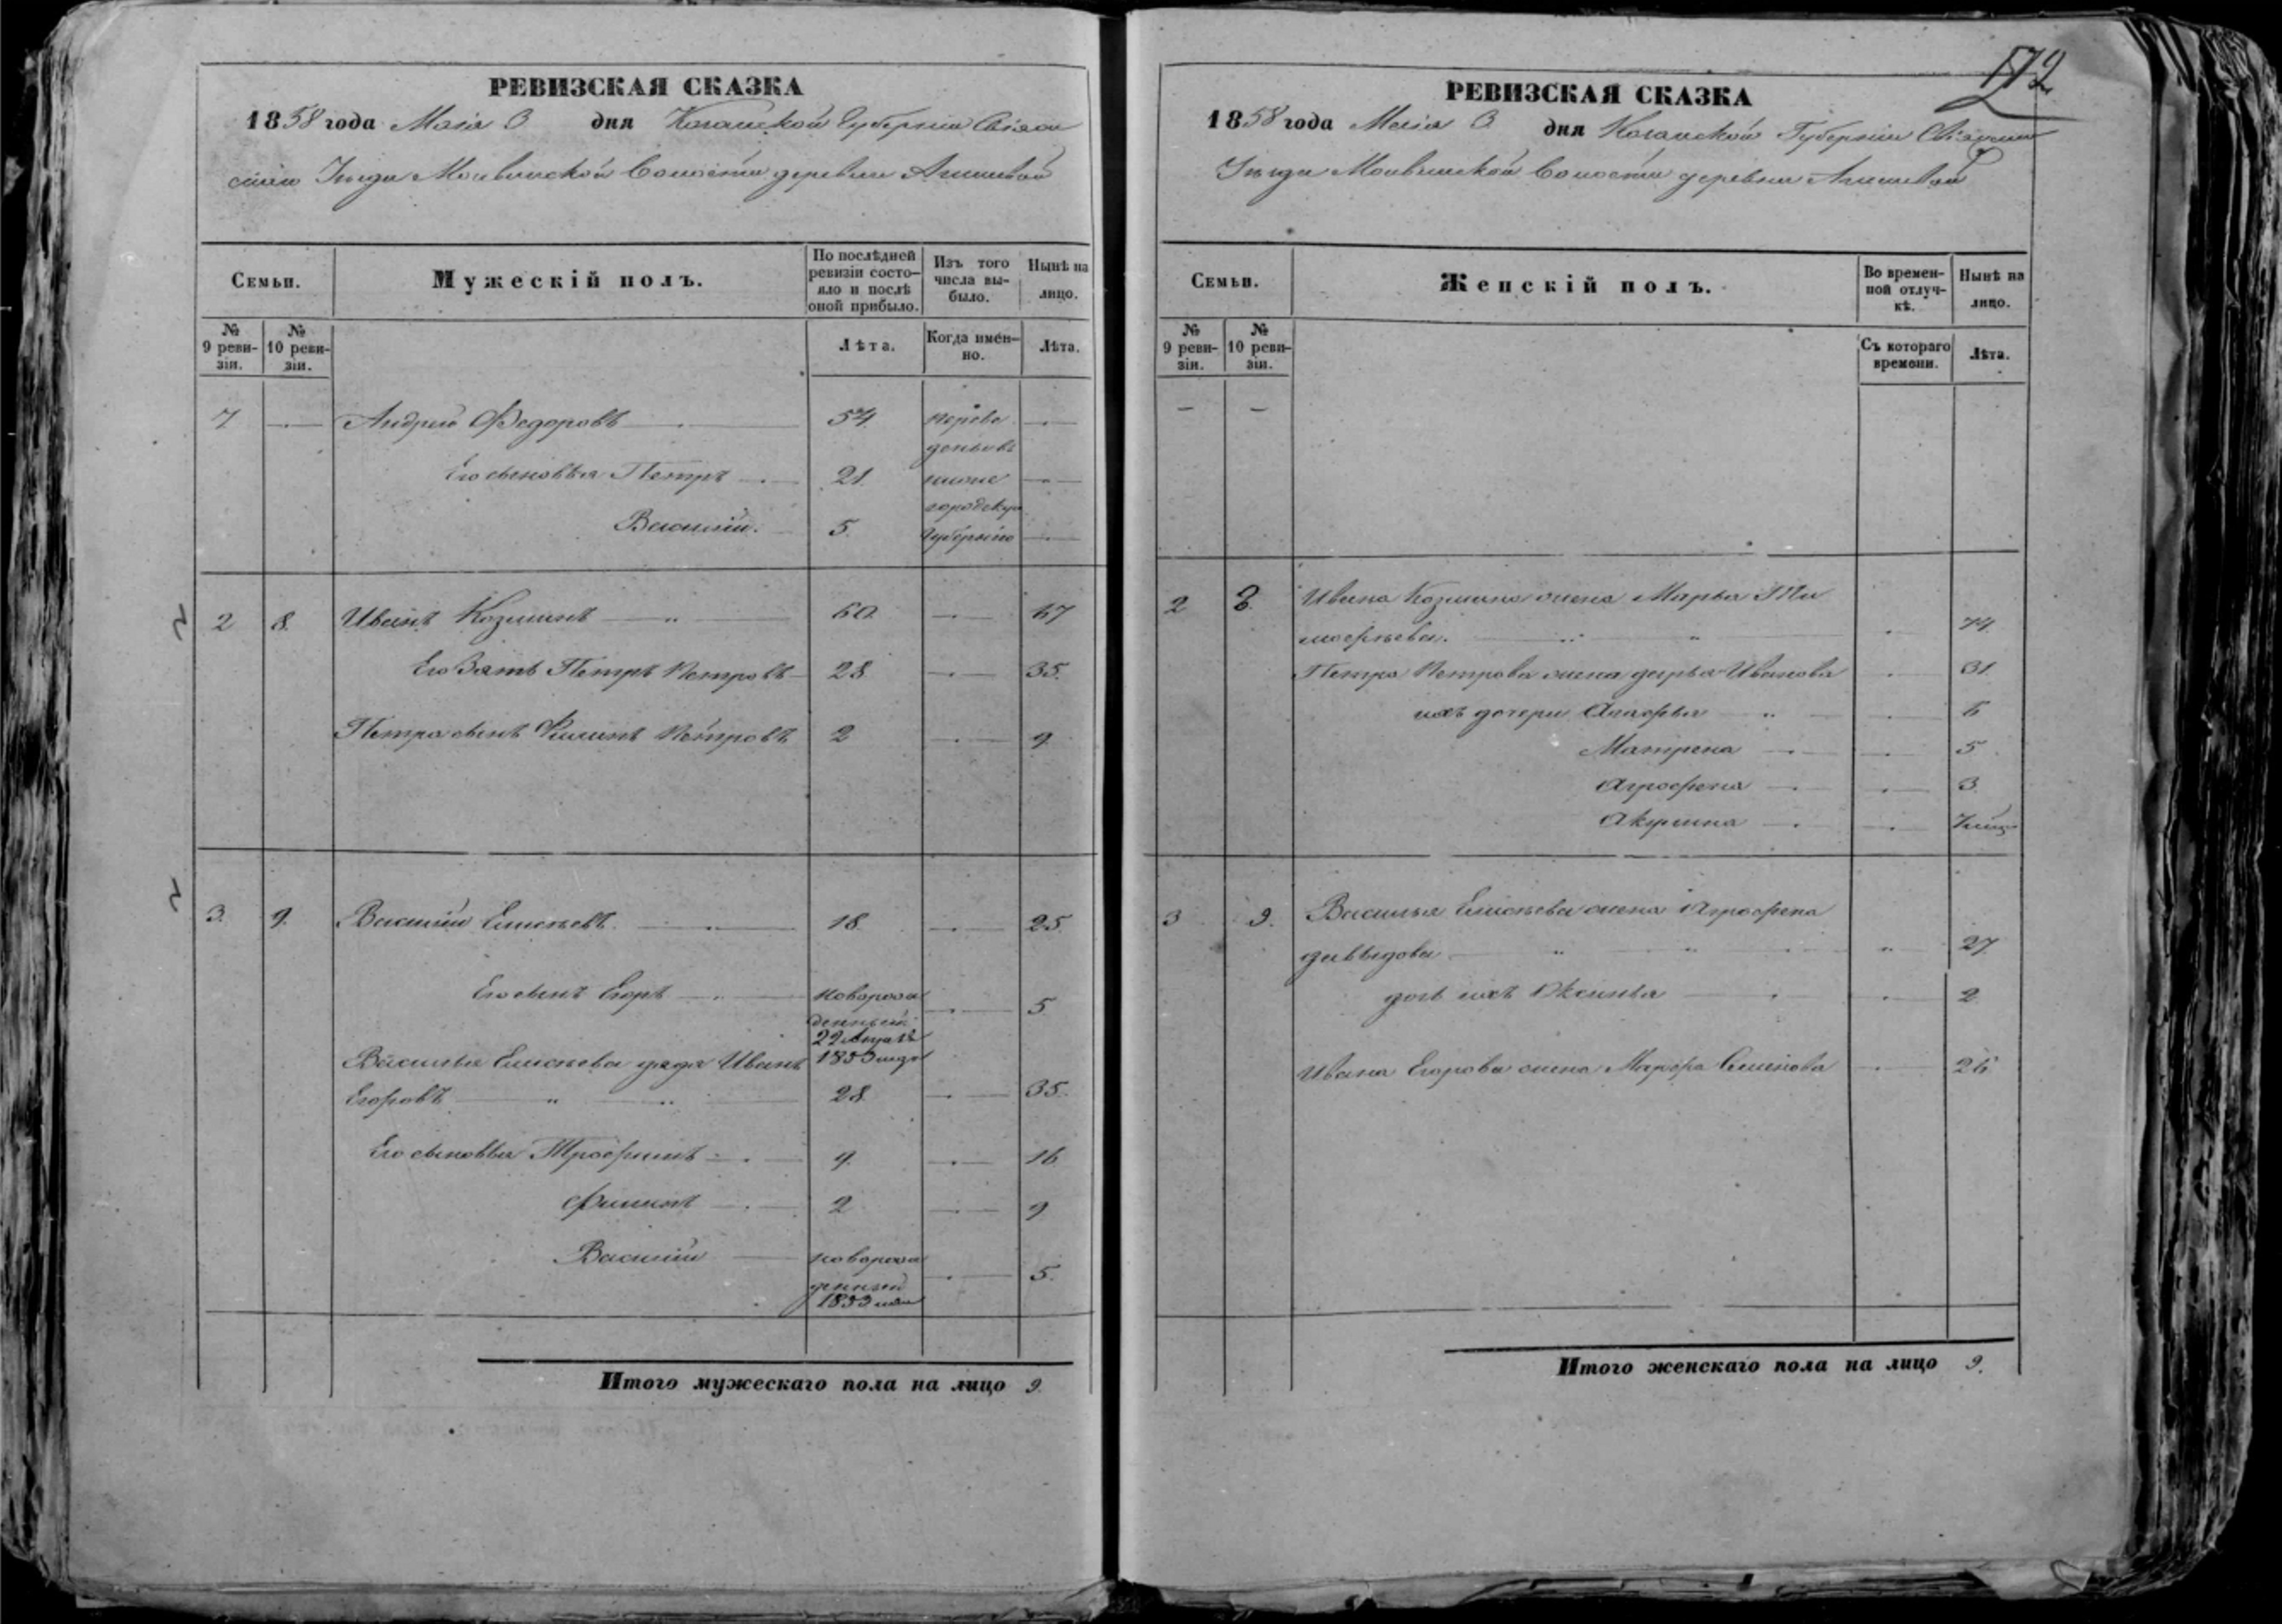 172
РЕВИЗСКАЯ СКАЗКА
1858 года Маія 3 дня Казанской Губерніи Свіяж
скаго Уѣзда Моквинской Волости деревни Агишевой
Семьи.
Мужескій полъ.
По послѣдней ревизіи состо-
яло и послѣ оной прибыло.
Изъ того числа вы-
было.
Нынѣ на лицо.
№ 9 реви-
зіи.
№ 10 реви-
зіи.
Лѣта.
Когда имен-
но.
Лѣта.
7 — Андрей Федоровъ 54 переве —
денъ въ
Его сыновья Петръ 21 ниже —
городскую
Василій. 5 губернію —
2 8. Иванъ Козминъ 60 — 67
Его Зять Петръ Петровъ 28 — 35.
Петра сынъ Филипъ Петровъ 2 — 9
3. 9. Василій Елисѣевъ 18 — 25.
Его сынъ Егоръ новорож — 5
денный
22 Апрѣля
1853 года
Василья Елисѣева дядя Иванъ
Егоровъ 28 — 35.
Его сыновья Трофимъ 9 — 16
Филипъ 2 — 9
Василій новорож — 5.
денный
1853 года
Итого мужескаго пола на лицо 9.
РЕВИЗСКАЯ СКАЗКА
1858 года Маія 3 дня Казанской Губерніи Свіяжскаго
Уѣзда Моквинской Волости деревни Агишевой
Семьи.
Женскій полъ.
Во времен-
ной отлуч-
кѣ.
Нынѣ на лицо.
№ 9 реви-
зіи.
№ 10 реви-
зіи.
Съ котораго времени.
Лѣта.
— —
2 8. Ивана Козмина жена Марья Ти
мофѣева. 74.
Петра Петрова жена дарья Иванова 31.
ихъ дочери Агафья 6
Матрена 5
Агрофена 3
Акулина
3 9. Василья Елисѣева жена Агрофена
давыдова 27
дочь ихъ Аксинья 2
Ивана Егорова жена Марфа Семенова 26
Итого женскаго пола на лицо 9.